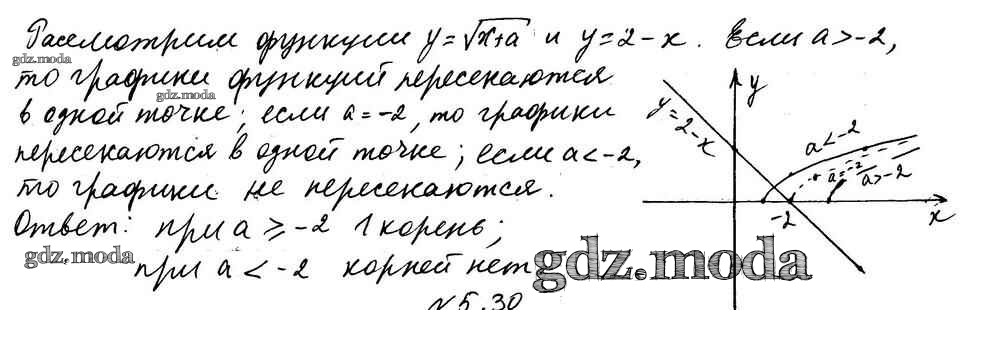 Рассмотрим функции y=√x+a и y=2-x. Если a>-2,
gdz.moda
то графики функций пересекаются
gdz.moda
в одной точке; если a=-2, то графики
пересекаются в одной точке; если a<-2,
то графики не пересекаются.
Ответ: при a≥-2 1 корень;
gdz.moda
при a<-2 корней нет
gdz.moda
№5.30
y
y=2-x
a<-2
a=-2
a>-2
-2
x